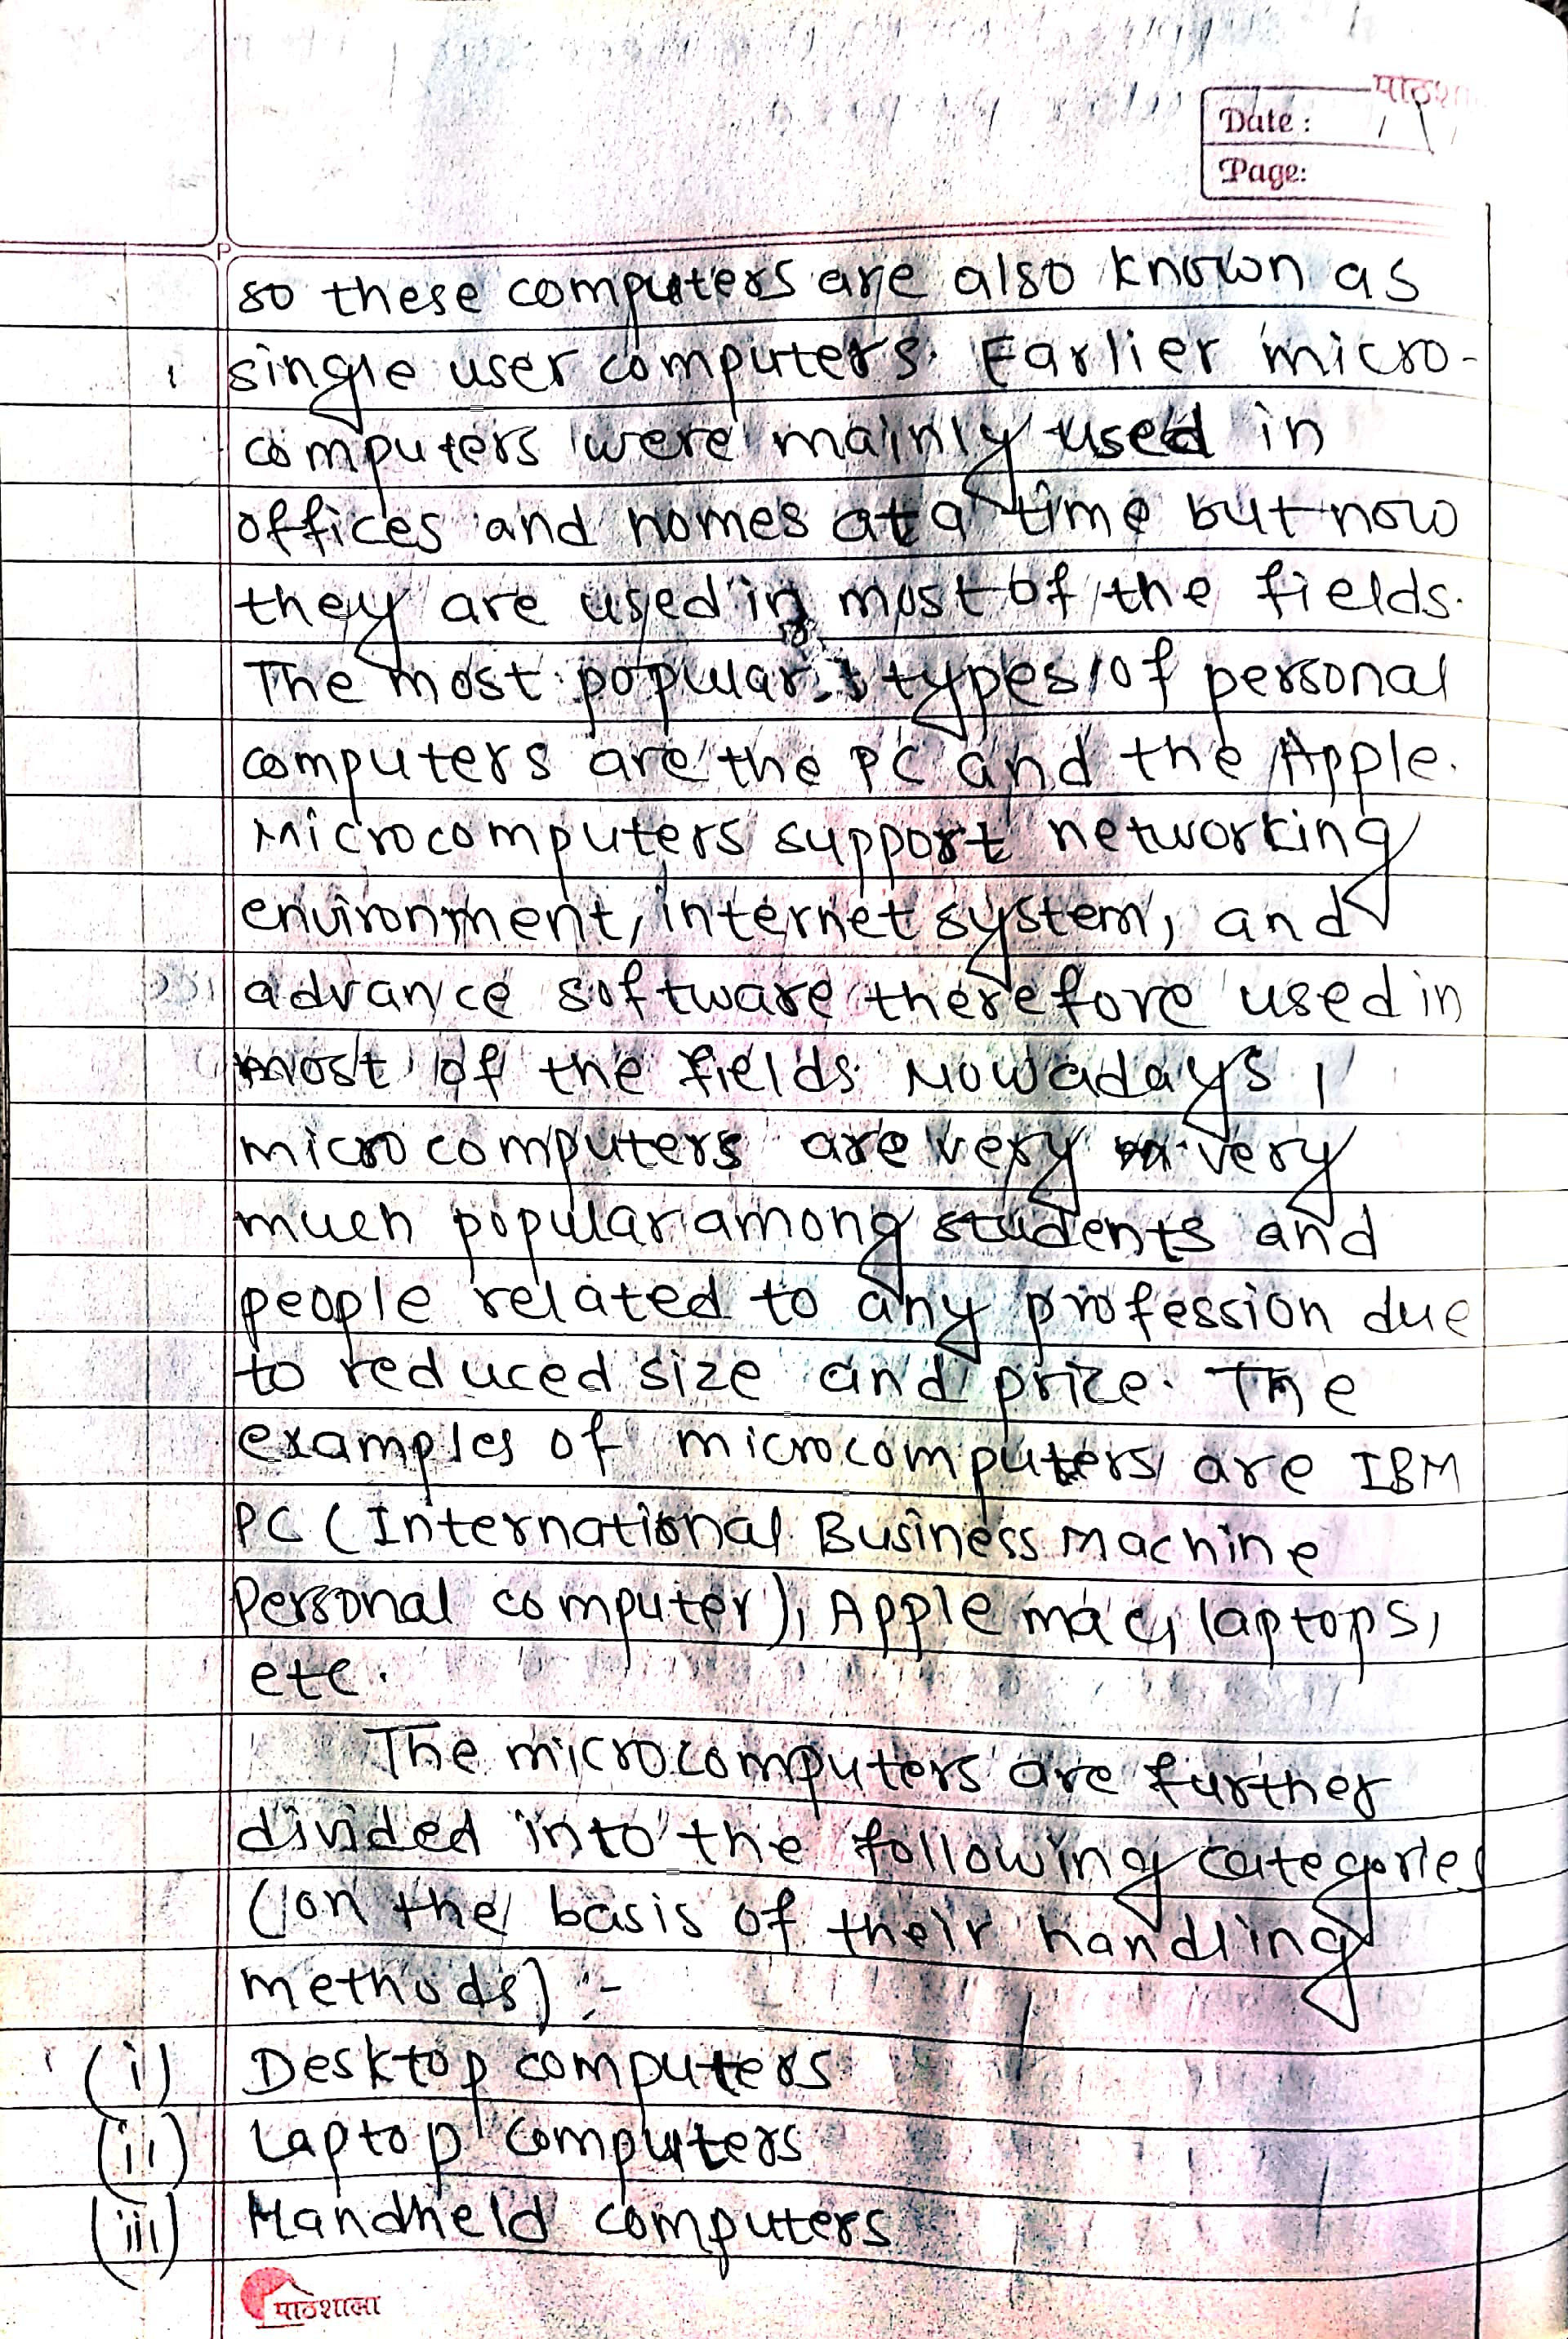 पाठशा
Date :
Page:
so these computers are also known as
single user computers. Earlier micro-
computers were mainly used in
offices and homes at a time but now
they are used in most of the fields.
The most popular types of personal
computers are the PC and the Apple.
Microcomputers support networking
environment, internet system, and
advance software therefore used in
most of the fields. Nowadays,
microcomputers are very very
much popular among students and
people related to any profession due
to reduced size and price. The
examples of microcomputers are IBM
PC (International Business Machine
Personal computer), Apple mac, laptops,
etc.
The microcomputers are further
divided into the following categories
(on the basis of their handling
methods) :-
(i) Desktop computers
(ii) Laptop computers
(iii) Handheld computers
पाठशाला